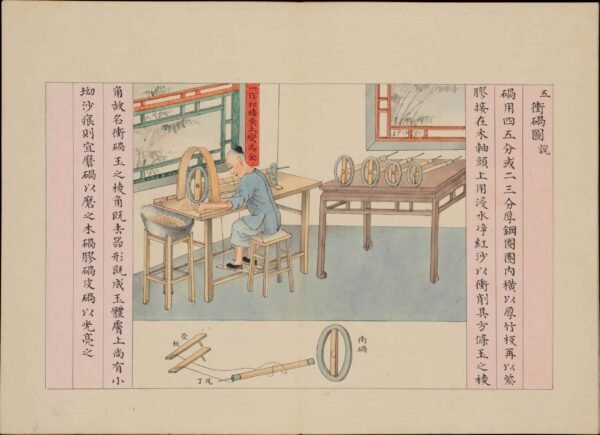 五衝碢圖說
碢用四五分或二三分厚鋼圈圈內橫以厚竹板再以紫
膠接在木軸頭上用浸水淨紅沙以衝削其方條玉之棱
角故名衝碢玉之棱角既去器形既成玉體膚上尚有小
坳沙痕則宜磨碢以磨之木碢膠碢皮碢以光亮之
衝碢
登板
尾丁